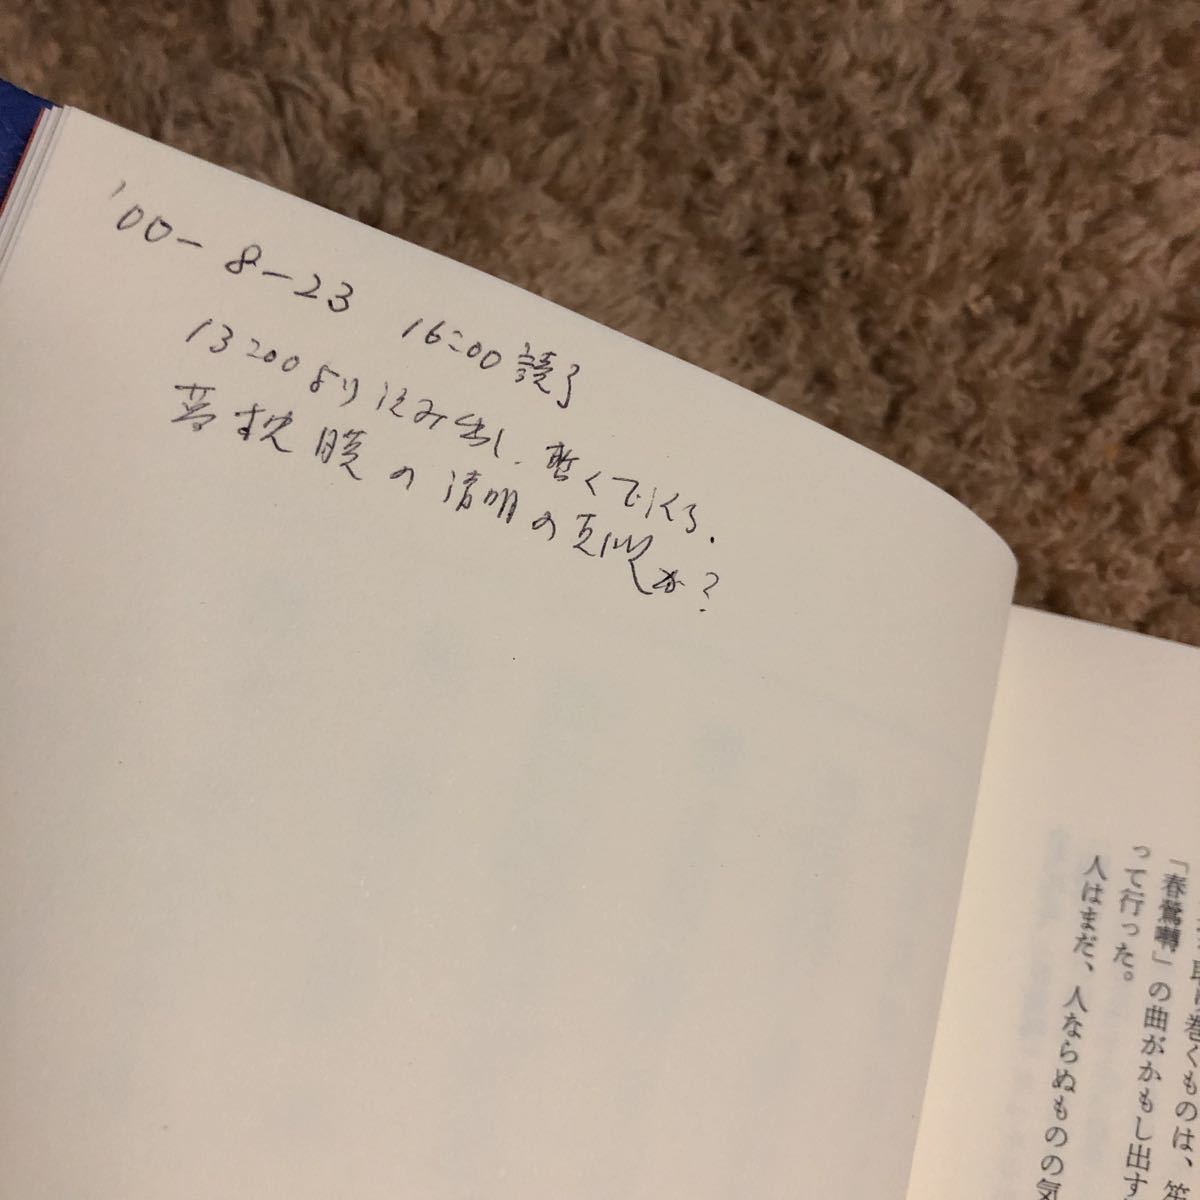 '00-8-23 16:00 読了
13:00より読み出し、暫くでんくる.
夢枕獏の清明の真似か?
「春鶯囀」の曲がかもし出す
って行った。
人はまだ、人ならぬものの気